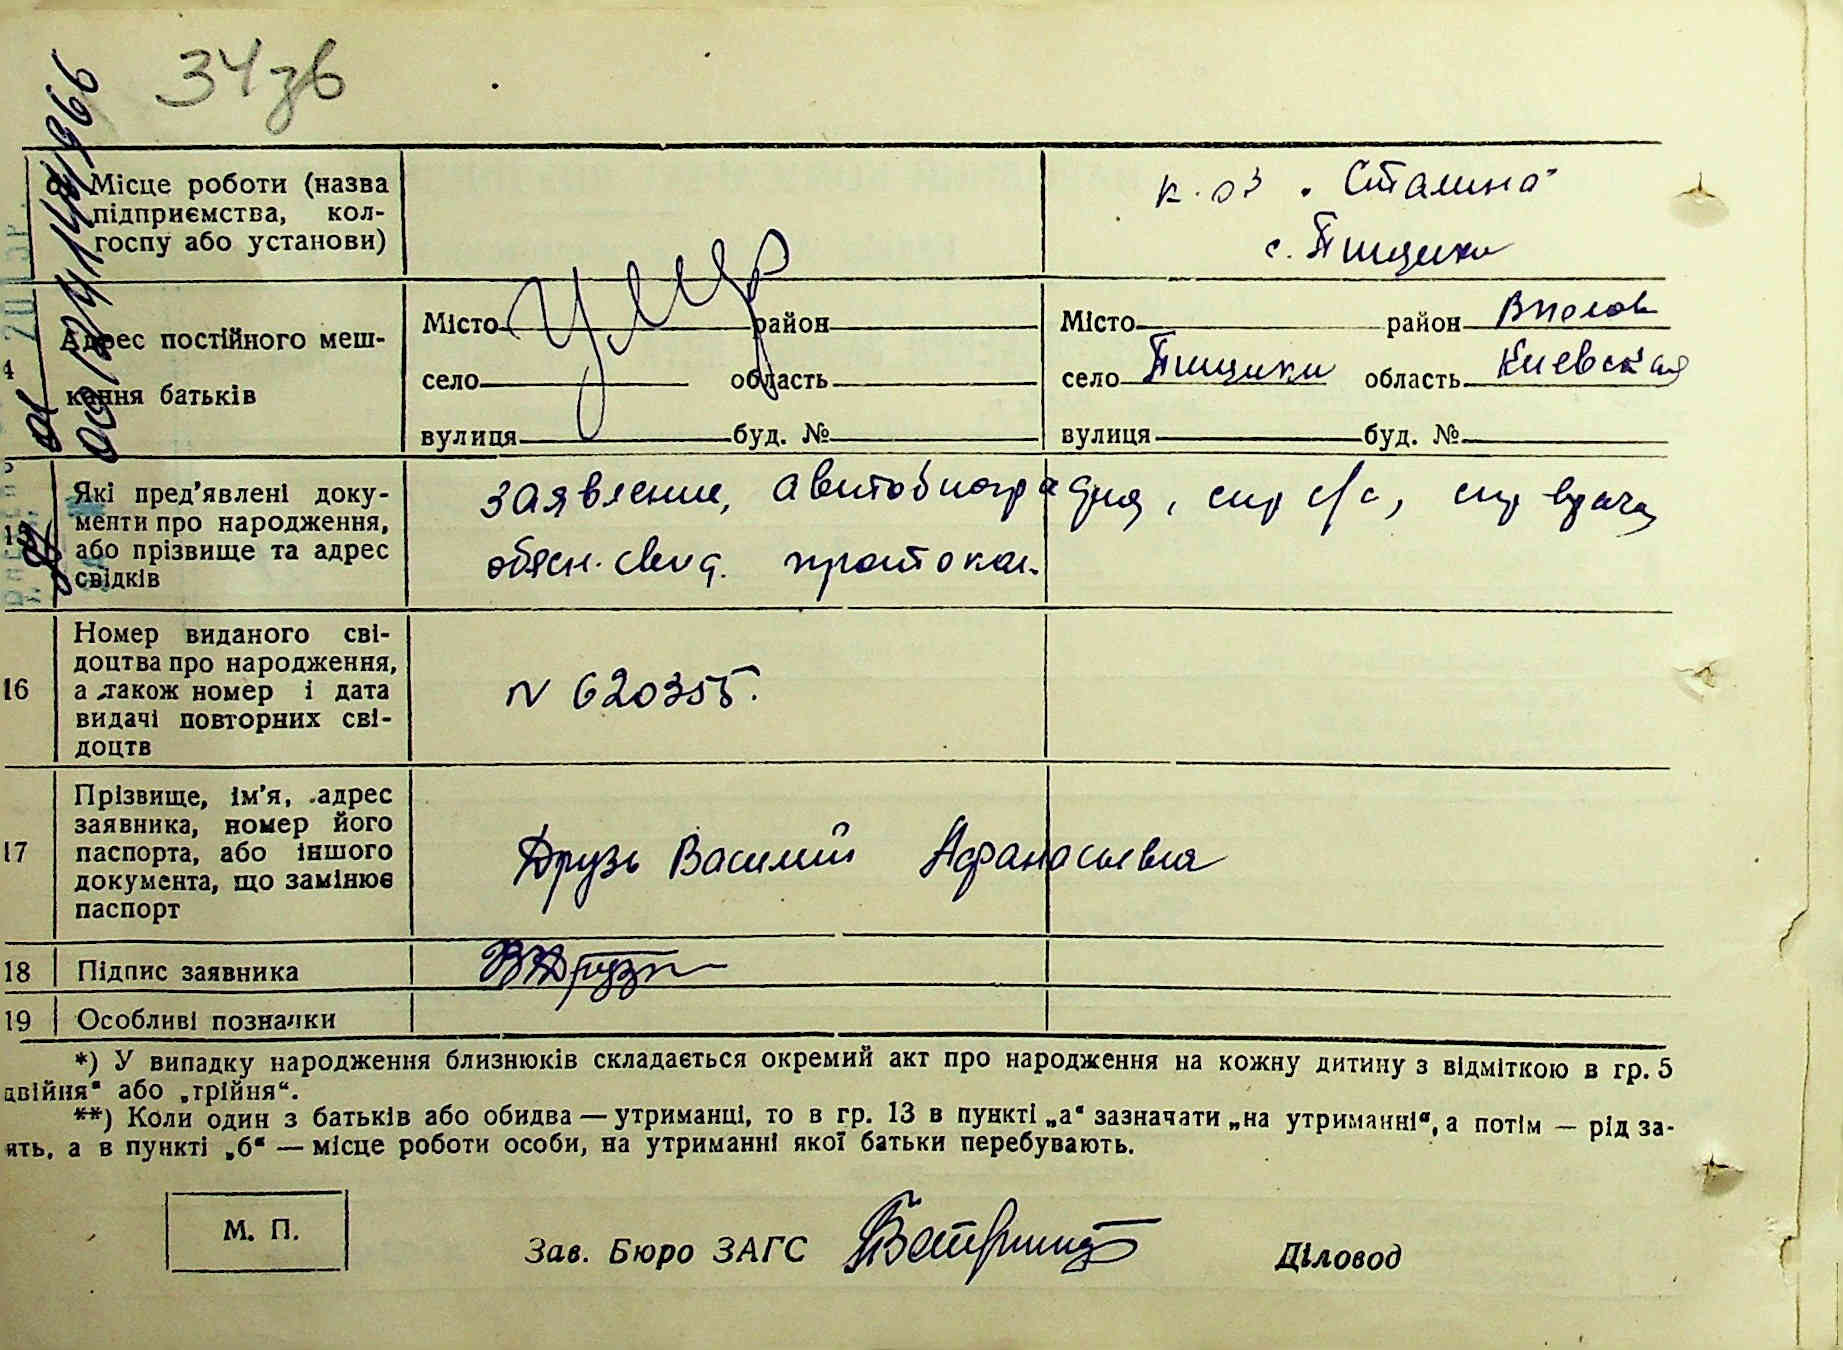 34зв
Місце роботи (назва підприємства, колгоспу або установи)
к-оз „Сталина"
с. Пищики
4 Адрес постійного мешкання батьків
умер
Місто район
село область
вулиця буд. №
Місто район
село Пищики область Киевская
вулиця буд. №
15 Які пред'явлені документи про народження, або прізвище та адрес свідків
заявление, автобиография, спр с/с, спр врача,
объясн. свид. протокол.
16 Номер виданого свідоцтва про народження, а також номер і дата видачі повторних свідоцтв
N 620355.
17 Прізвище, ім'я, адрес заявника, номер його паспорта, або іншого документа, що замінює паспорт
Друзь Василий Афанасьевич
18 Підпис заявника
ВДрузь
19 Особливі позначки
*) У випадку народження близнюків складається окремий акт про народження на кожну дитину з відміткою в гр. 5
двійня" або „трійня“.
**) Коли один з батьків або обидва — утриманці, то в гр. 13 в пункті „а“ зазначати „на утриманні“, а потім — рід за-
ять, а в пункті „б“ — місце роботи особи, на утриманні якої батьки перебувають.
М. П.
Зав. Бюро ЗАГС
Діловод